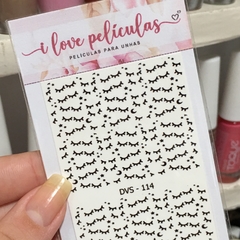 i love películas
PELÍCULAS PARA UNHAS
DVS - 114